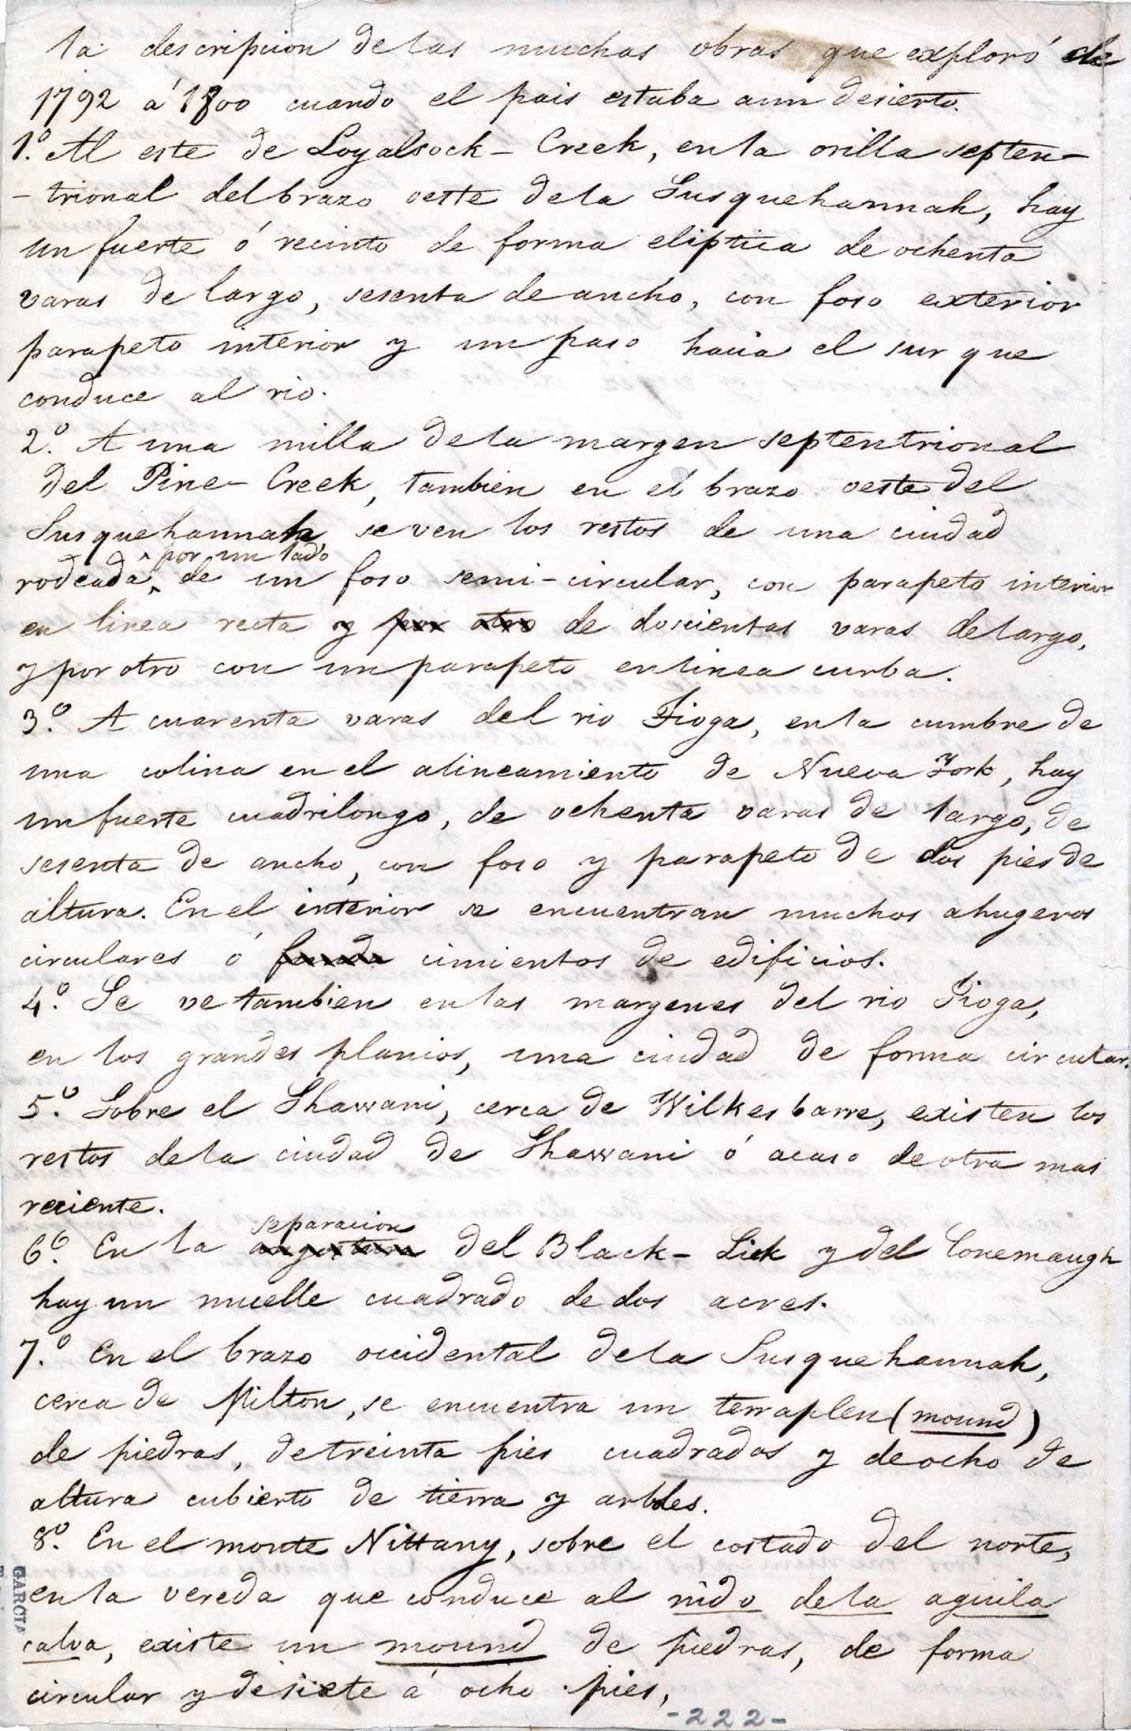 la descripcion de las muchas obras que exploró de
1792 á 1800 cuando el pais estaba aun desierto.
1.º Al este de Loyalsock-Creek, en la orilla septen-
-trional del brazo oeste de la Susquehannah, hay
un fuerte ó recinto de forma eliptica de ochenta
varas de largo, sesenta de ancho, con foso exterior
parapeto interior y un paso hacia el sur que
conduce al rio.
2.º A una milla de la margen septentrional
del Pine-Creek, tambien en el brazo oeste del
Susquehannah se ven los restos de una ciudad
por un lado
rodeada, de un foso semi-circular, con parapeto interior
en linea recta y por otro de doscientas varas de largo,
y por otro con un parapeto en linea curba.
3.º A cuarenta varas del rio Tioga, en la cumbre de
una colina en el alineamiento de Nueva York, hay
un fuerte cuadrilongo, de ochenta varas de largo, de
sesenta de ancho, con foso y parapeto de dos pies de
altura. En el interior se encuentran muchos ahugeros
circulares ó cimientos de edificios.
4.º Se ve tambien en las margenes del rio Tioga,
en los grandes planios, una ciudad de forma circular.
5.º Sobre el Shawani, cerca de Wilkesbarre, existen los
restos de la ciudad de Shawani ó acaso de otra mas
reciente.
separacion
6.º En la angostura del Black-Lick y del Conemaugh
hay un muelle cuadrado de dos acres.
7.º En el brazo occidental de la Susquehannah,
cerca de Milton, se encuentra un terraplen (mound)
de piedras, de treinta pies cuadrados y de ocho de
altura cubierto de tierra y arbles.
8.º En el monte Nittany, sobre el costado del norte,
en la vereda que conduce al nido de la aguila
calva, existe un mound de piedras, de forma
circular y de siete á ocho pies,
-222-
GARCIA